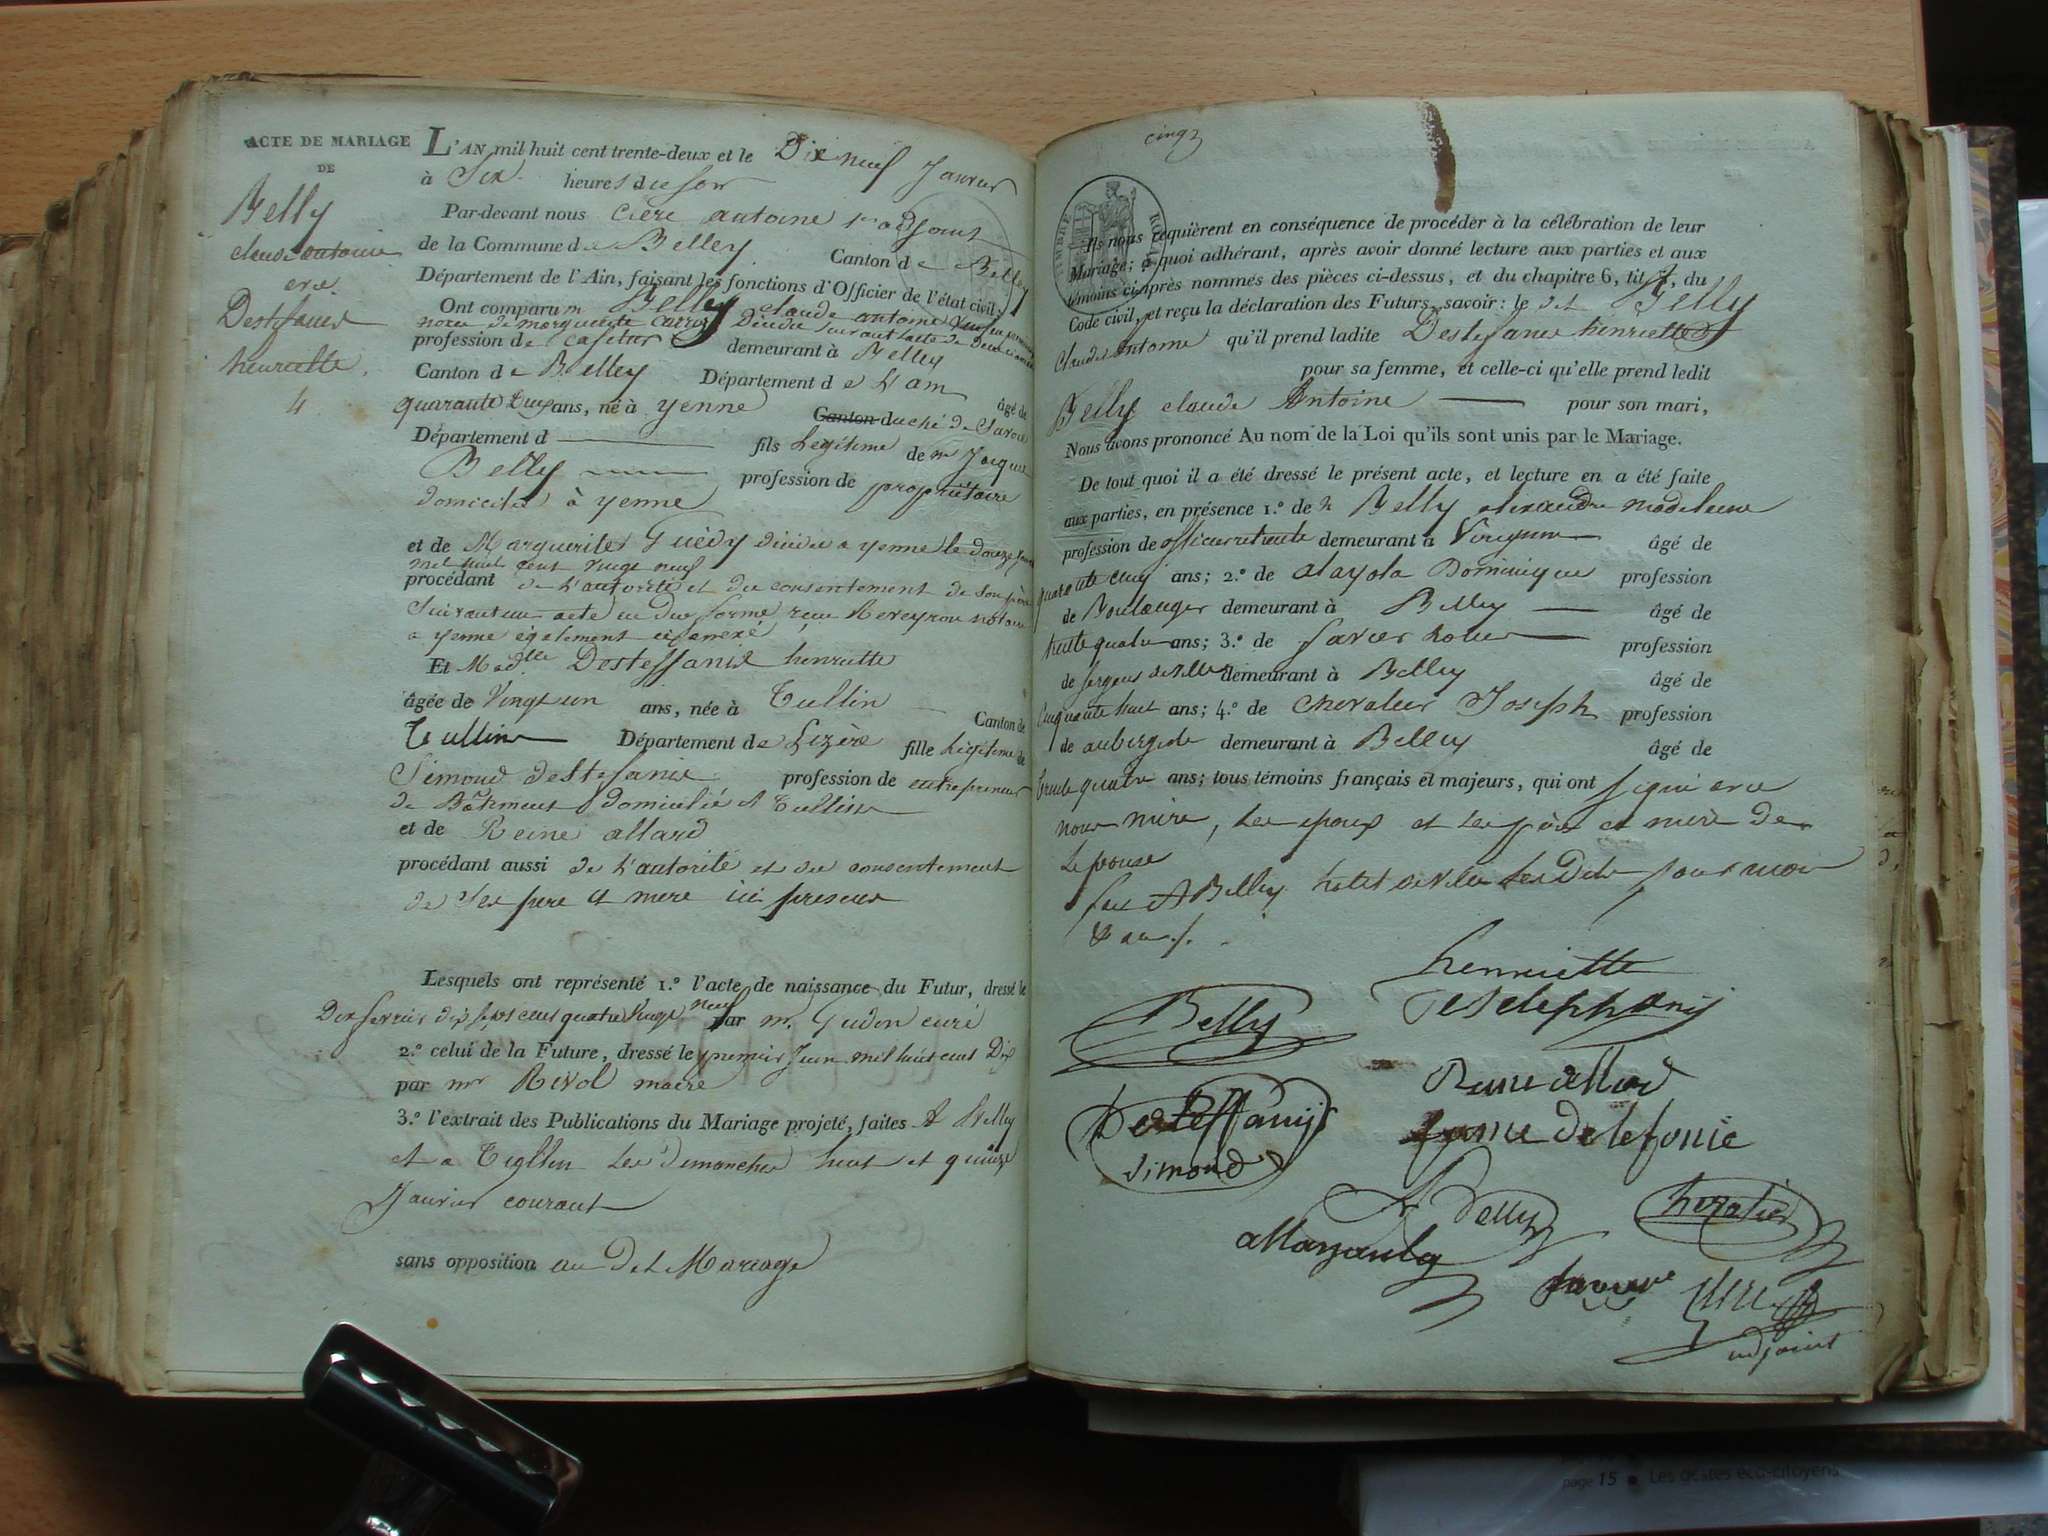 ACTE DE MARIAGE
DE
Belly
claude antoine
avec
Destefanis
henriette
4
L'AN mil huit cent trente-deux et le Dix neuf Janvier
à Six heures du soir
Par-devant nous antoine 1er adjoint
de la Commune de Belley Canton de Belley
Département de l'Ain, faisant les fonctions d'Officier de l'état civil,
Ont comparu Mr Belly claude antoine
profession de cafetier demeurant à Belley
Canton de Belley Département de L'ain âgé de
quarante Deux ans, né à yenne Canton duché de Savoie
Département d fils Legitime de mr Jacque
Belly profession de propriétaire
domicilié à yenne
et de Marguerite Guédy décédée a yenne le douze
mil huit cent vingt neuf
procédant de L'autorité et du consentement de Son père
Suivant un acte en due forme reçu notaire
a yenne également annexé
Et Madlle Desteffanis henriette
âgée de Vingt un ans, née à Tullin Canton de
Tullin Département de Lizère fille Légitime de
Simond destefanis profession de entrepreneur
de Bâtiment domicilié A Tullin
et de Reine allard
procédant aussi de L'autorité et du consentement
de Ses pere et mere ici presens
Lesquels ont représenté 1.º l'acte de naissance du Futur, dressé le
Dix fevrier dix sept cent quatre vingt neuf par m. Gudin curé
2.º celui de la Future, dressé le premier Juin mil huit cent Dix
par mr Rivol maire
3.º l'extrait des Publications du Mariage projeté, faites A Belley
et a Tullin Les dimanches huit et quinze
Janvier courant
sans opposition au Dit Mariage
cinq
TIMBRE ROYAL
Ils nous requièrent en conséquence de procéder à la célébration de leur
Mariage; à quoi adhérant, après avoir donné lecture aux parties et aux
témoins ci-après nommés des pièces ci-dessus, et du chapitre 6, tit. 5, du
Code civil, et reçu la déclaration des Futurs, savoir: le dit Belly
Claude antoine qu'il prend ladite Destefanis henriette
pour sa femme, et celle-ci qu'elle prend ledit
Belly claude Antoine pour son mari,
Nous avons prononcé Au nom de la Loi qu'ils sont unis par le Mariage.
De tout quoi il a été dressé le présent acte, et lecture en a été faite
aux parties, en présence 1.º de Belly alexandre madeleine
profession de officier retraité demeurant à âgé de
quarante cinq ans; 2.º de Dominique profession
de Boulanger demeurant à Belley âgé de
trente quatre ans; 3.º de profession
de sergent de ville demeurant à Belley âgé de
Cinquante huit ans; 4.º de Chevalier Joseph profession
de aubergiste demeurant à Belley âgé de
trente quatre ans; tous témoins français et majeurs, qui ont signé avec
nous , Les epoux et Les père et mère de
Lepouse
fait A Belley hotel de ville Les Dits jour mois
& an
henriette
destephanis
Belly
Desteffanijs
Simond
Reine allard
Belly
adjoint
page 15 • Les gestes éco-citoyens